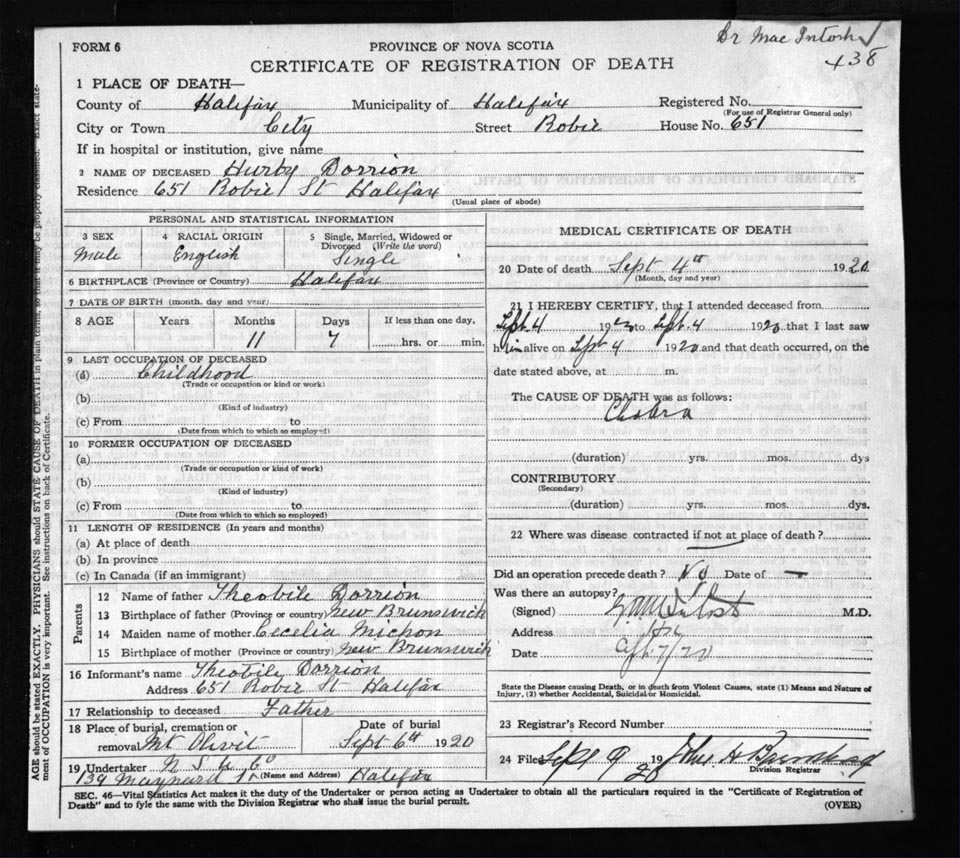 Dr Mac Intosh
438
FORM 6
PROVINCE OF NOVA SCOTIA
CERTIFICATE OF REGISTRATION OF DEATH
1 PLACE OF DEATH—
County of Halifax Municipality of Halifax Registered No.
(For use of Registrar General only)
City or Town City Street Robie House No. 651
If in hospital or institution, give name
2 NAME OF DECEASED Hurby Dorrion
Residence 651 Robie St Halifax
(Usual place of abode)
PERSONAL AND STATISTICAL INFORMATION
3 SEX 4 RACIAL ORIGIN 5 Single, Married, Widowed or Divorced (Write the word)
Male English Single
6 BIRTHPLACE (Province or Country) Halifax
7 DATE OF BIRTH (month, day and year)
8 AGE Years Months Days If less than one day,
11 7 hrs. or min.
9 LAST OCCUPATION OF DECEASED
(a) Childhood
(Trade or occupation or kind or work)
(b)
(Kind of industry)
(c) From to
(Date from which to which so employed)
10 FORMER OCCUPATION OF DECEASED
(a)
(Trade or occupation or kind or work)
(b)
(Kind of industry)
(c) From to
(Date from which to which so employed)
11 LENGTH OF RESIDENCE (In years and months)
(a) At place of death
(b) In province
(c) In Canada (if an immigrant)
Parents
12 Name of father Theobile Dorrion
13 Birthplace of father (Province or country) New Brunswick
14 Maiden name of mother Cecelia Michon
15 Birthplace of mother (Province or country) New Brunswick
16 Informant's name Theobile Dorrion
Address 651 Robie St Halifax
17 Relationship to deceased Father
18 Place of burial, cremation or removal Mt Olivit Date of burial Sept 6th 1920
19 Undertaker N S U Co
139 Maynard St (Name and Address) Halifax
MEDICAL CERTIFICATE OF DEATH
20 Date of death Sept 4th 1920
(Month, day and year)
21 I HEREBY CERTIFY, that I attended deceased from
Sept. 4 1920 to Sept. 4 1920 that I last saw
h im alive on Sept 4 1920 and that death occurred, on the
date stated above, at m.
The CAUSE OF DEATH was as follows:
(duration) yrs. mos. dys
CONTRIBUTORY
(Secondary)
(duration) yrs. mos. dys.
22 Where was disease contracted if not at place of death?
Did an operation precede death? No Date of —
Was there an autopsy?
(Signed) M.D.
Address
Date
State the Disease causing Death, or in death from Violent Causes, state (1) Means and Nature of
Injury, (2) whether Accidental, Suicidal or Homicidal.
23 Registrar's Record Number
24 Filed Sept 9 1920 John H
Division Registrar
SEC. 46—Vital Statistics Act makes it the duty of the Undertaker or person acting as Undertaker to obtain all the particulars required in the "Certificate of Registration of
Death" and to fyle the same with the Division Registrar who shall issue the burial permit.
(OVER)
AGE should be stated EXACTLY. PHYSICIANS should STATE CAUSE OF DEATH in plain terms, so that it may be properly classified. Exact state-
ment of OCCUPATION is very important. See instructions on back of Certificate.